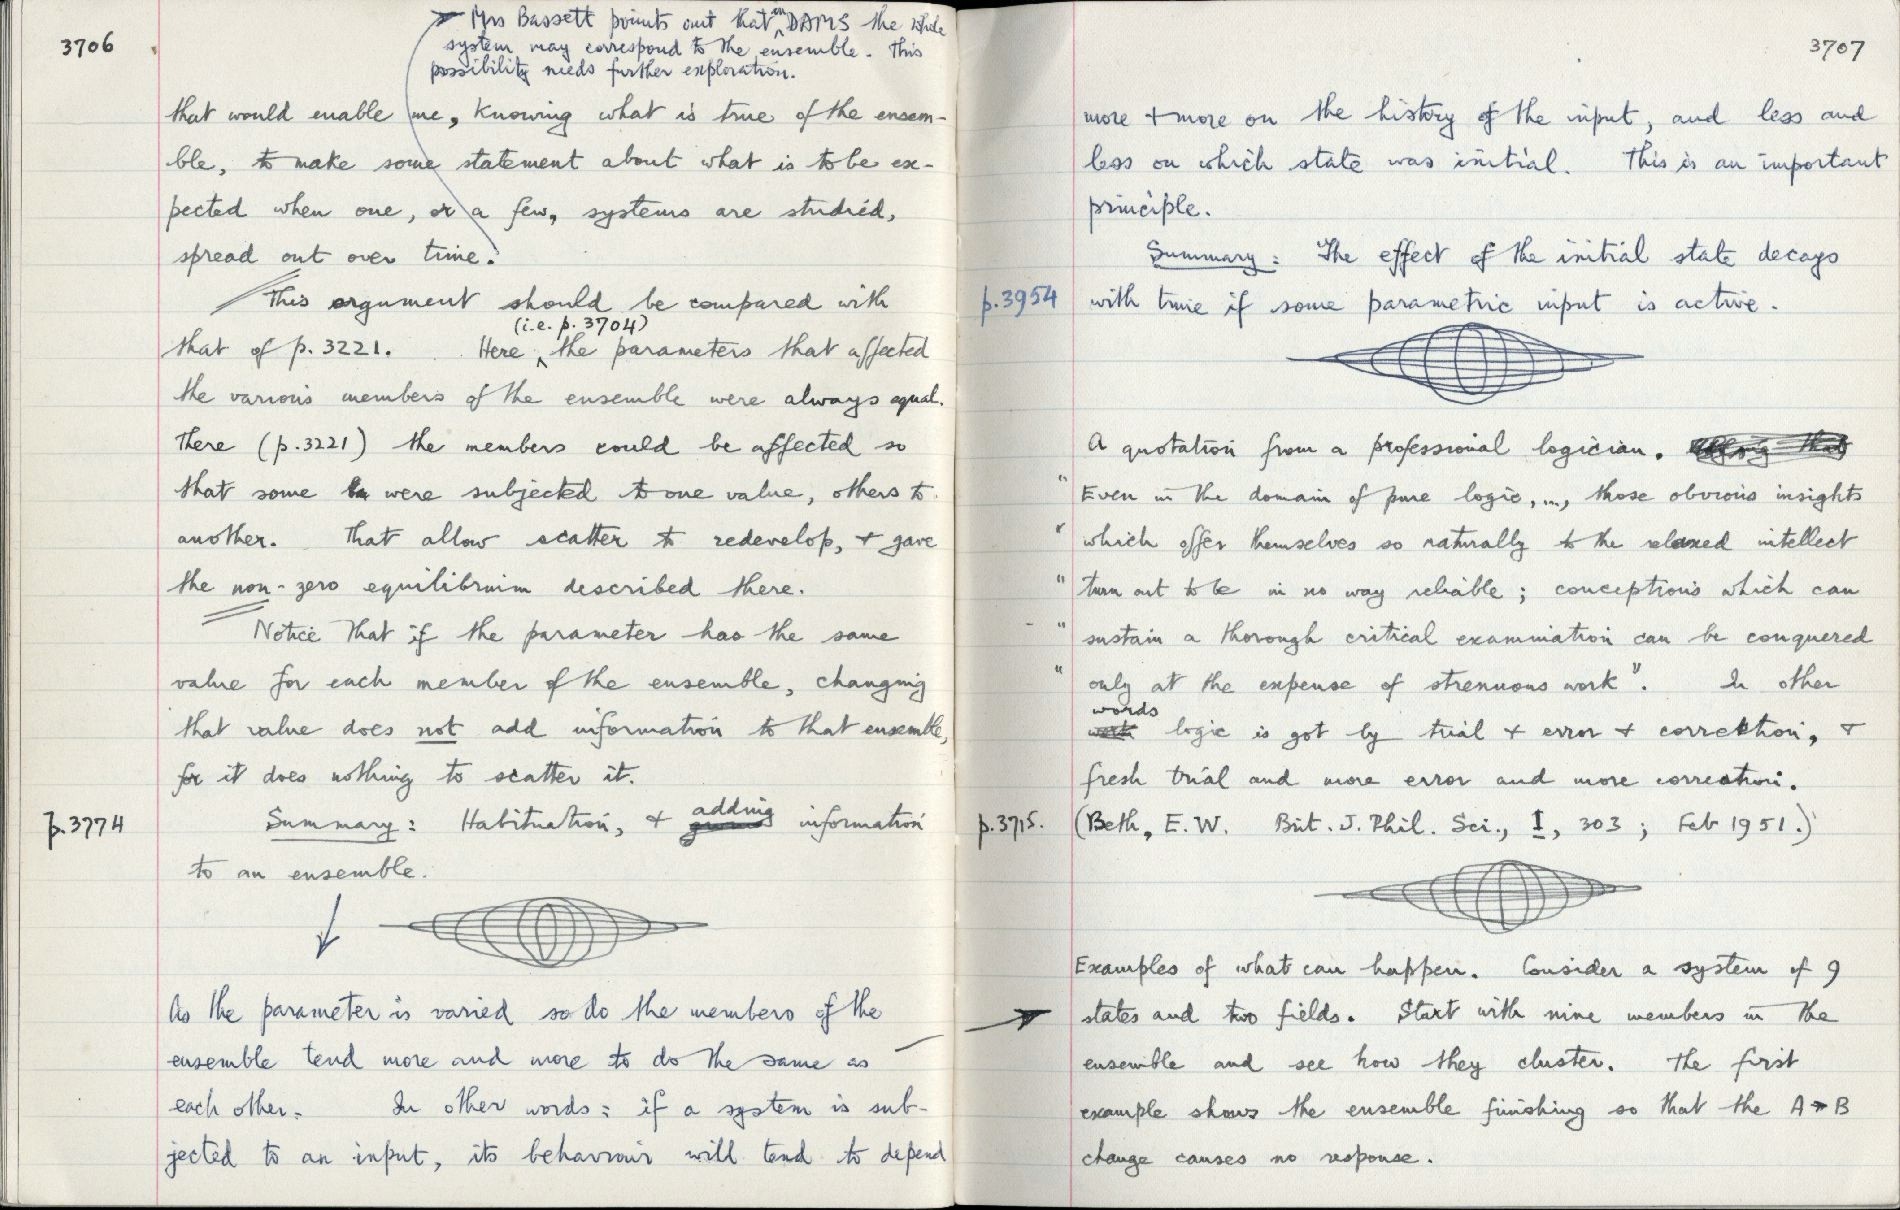 3706
Mrs Bassett points out that in DAMS the whole
system may correspond to the ensemble. This
possibility needs further exploration.
that would enable me, knowing what is true of the ensem-
ble, to make some statement about what is to be ex-
pected when one, or a few, systems are studied,
spread out over time.
This argument should be compared with
(i.e. p. 3704)
that of p. 3221. Here the parameters that affected
the various members of the ensemble were always equal.
There (p. 3221) the members could be affected so
that some were subjected to one value, others to
another. That allow scatter to redevelop, + gave
the non-zero equilibrium described there.
Notice that if the parameter has the same
value for each member of the ensemble, changing
that value does not add information to that ensemble,
for it does nothing to scatter it.
p. 3774
Summary: Habituation, + adding information
to an ensemble.
As the parameter is varied so do the members of the
ensemble tend more and more to do the same as
each other. In other words: if a system is sub-
jected to an input, its behaviour will tend to depend
3707
more + more on the history of the input, and less and
less on which state was initial. This is an important
principle.
Summary: The effect of the initial state decays
p. 3954 with time if some parametric input is active.
A quotation from a professional logician.
" Even in the domain of pure logic, ..., those obvious insights
" which offer themselves so naturally to the relaxed intellect
" turn out to be in no way reliable; conceptions which can
" sustain a thorough critical examination can be conquered
" only at the expense of strenuous work". In other
words logic is got by trial + error + correction, +
fresh trial and more error and more correction.
p. 3715. (Beth, E.W. Brit. J. Phil. Sci., I, 303; Feb 1951.)
Examples of what can happen. Consider a system of 9
states and two fields. Start with nine members in the
ensemble and see how they cluster. The first
example shows the ensemble finishing so that the A→B
change causes no response.